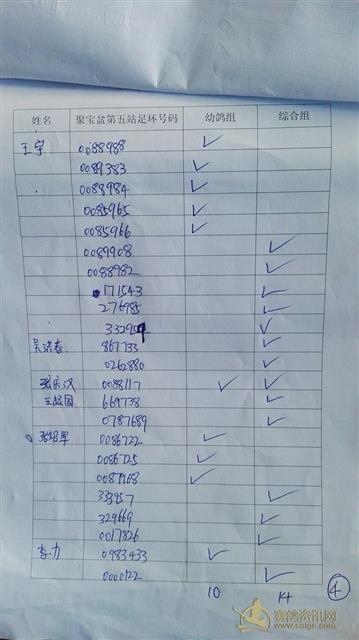 姓名 聚宝盆第五站足环号码 幼鸽组 综合组
王宇 0088988 ✓
0089383 ✓
0088984 ✓
0085965 ✓
0085966 ✓
0089908 ✓
0088982 ✓
171543 ✓
276985 ✓
332959 ✓
867733 ✓
0262880 ✓
0088117 ✓ ✓
669738 ✓
0787689 ✓
0086722 ✓
0086725 ✓
0087968 ✓
333957 ✓
329669 ✓
0017826 ✓
李力 0983433 ✓
0000122 ✓
10 14 ④
赛鸽资讯网
www.saige.com